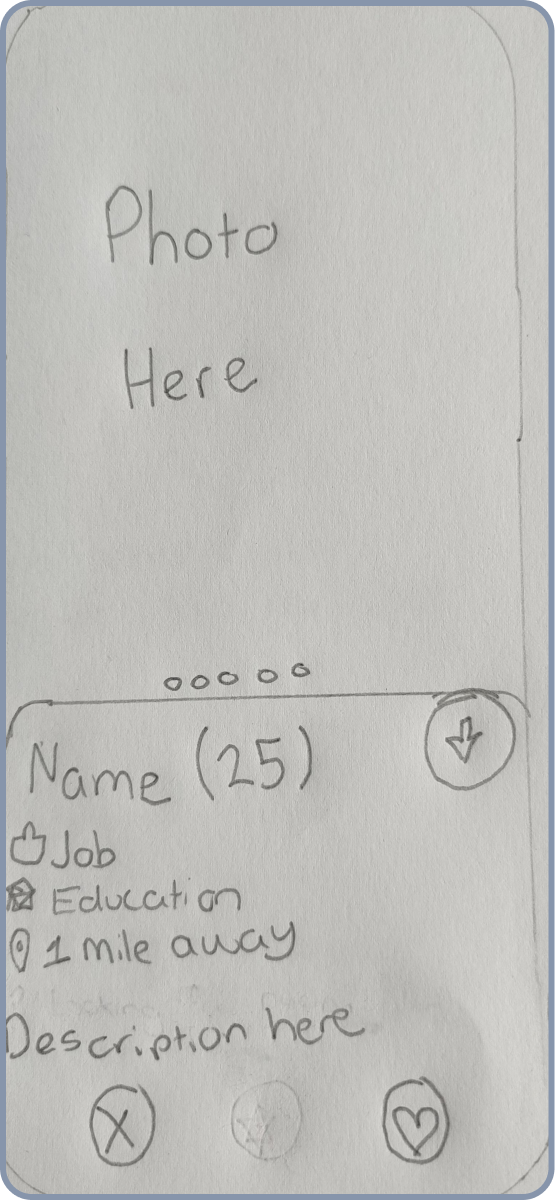 Photo
Here
Name (25)
Job
Education
1 mile away
Description here
X